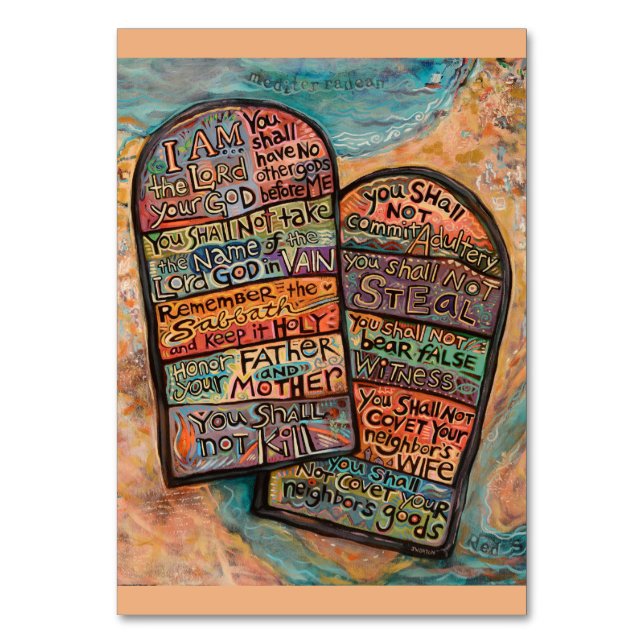 mediterradean
I AM...
the LORD
your GOD
You
shall
have NO
other gods
before ME
You SHALL Not take
the Name of the
Lord GOD in VAIN
Remember the
Sabbath
and keep it HOLY
Honor FATHER
your AND
MOTHER
YOU SHALL
not Kill
you SHAll
NOT
commit Adultery
you shall NOT
STEAL
you shall NOT
bear FALSE
WITNESS
You SHALL NOT
COVET YOUR
neighbor's
WIFE
you SHALL
NOT COVET YOUR
neighbors goods
Red S